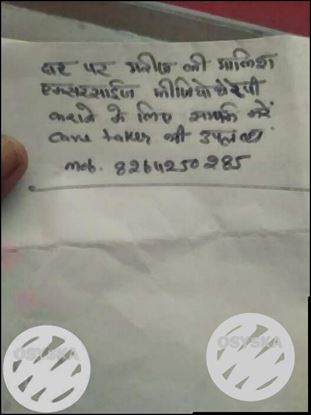 घर पर मरीज की मालिश
एक्सरसाईज फीजियोथेरेपी
कराने के लिए सम्पर्क करें
Care taker भी उपलब्ध
Mob. 8264250285
OSYSKA
OSYSKA